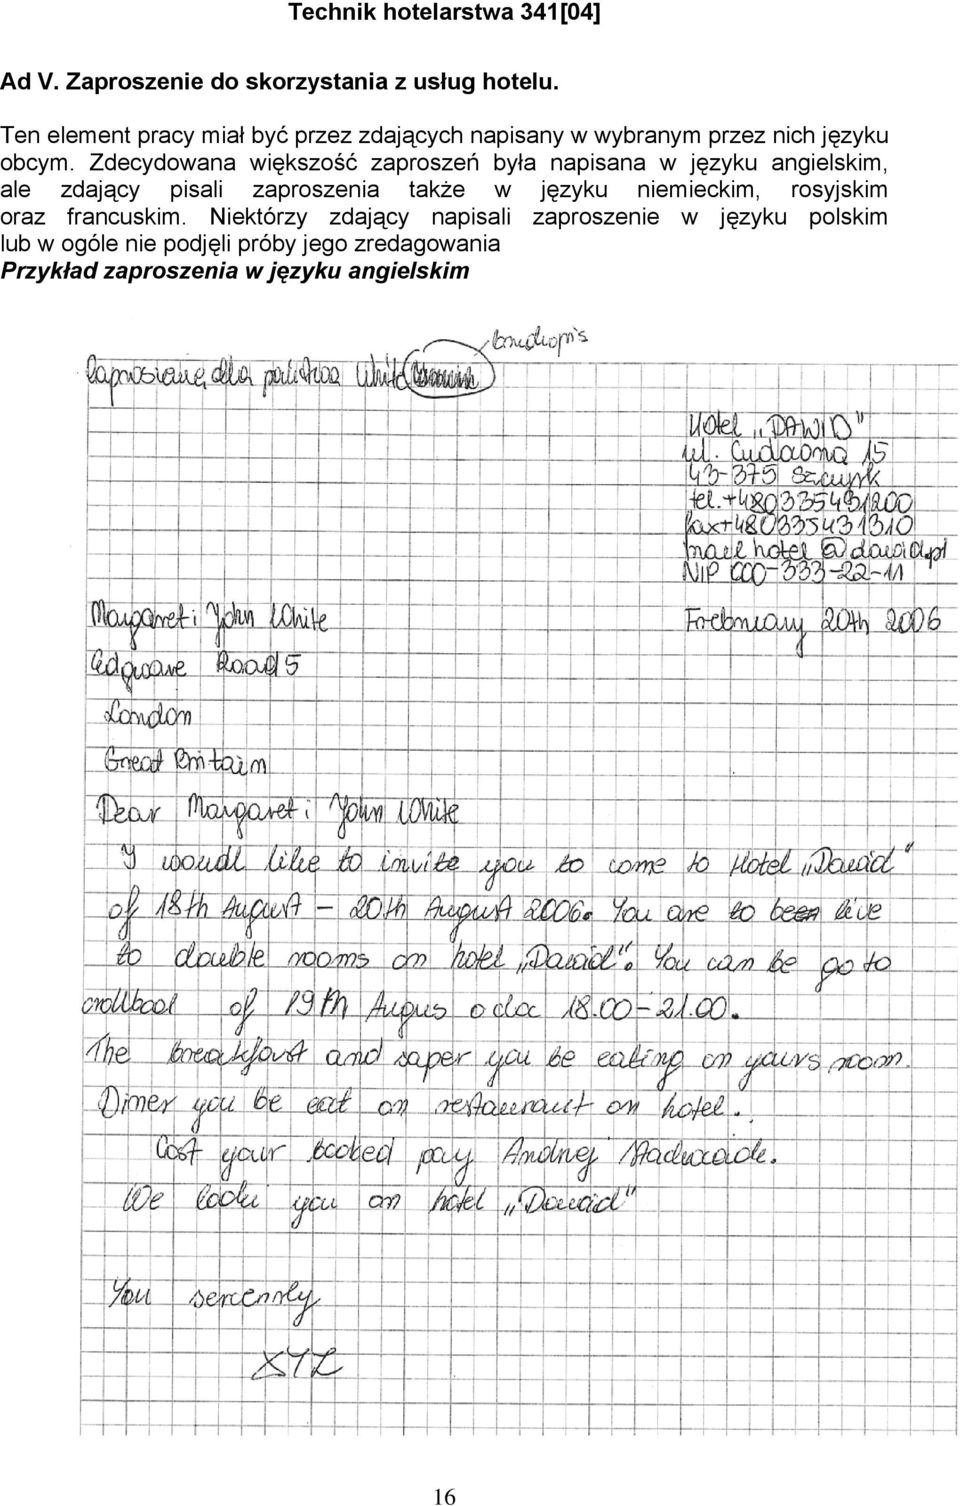 Technik hotelarstwa 341[04]
Ad V. Zaproszenie do skorzystania z usług hotelu.
Ten element pracy miał być przez zdających napisany w wybranym przez nich języku
obcym. Zdecydowana większość zaproszeń była napisana w języku angielskim,
ale zdający pisali zaproszenia także w języku niemieckim, rosyjskim
oraz francuskim. Niektórzy zdający napisali zaproszenie w języku polskim
lub w ogóle nie podjęli próby jego zredagowania
Przykład zaproszenia w języku angielskim
brudnopis
Zaproszenie dla państwa White
Hotel „DAWID"
ul. Cudowna 15
43-375 Szczyrk
tel. +480335431200
fax +480335431310
mail hotel@dawid.pl
NIP 000-333-22-11
Margaret i John White Frebruary 20th 2006
Edgware Road 5
London
Great Britain
Dear Margaret i John White
I woudl like to invite you to come to Hotel „Dawid"
of 18th August - 20th August 2006. You are to live
to double rooms on hotel „Dawid". You can be go to
of 19th Augus o cloc 18.00-21.00.
The breakfast and saper you be eating on yours room.
Dinner you be eat on restaurant on hotel.
Cost your booked pay Andrzej
We you on hotel „Dawid"
You sercennly
XYZ
16